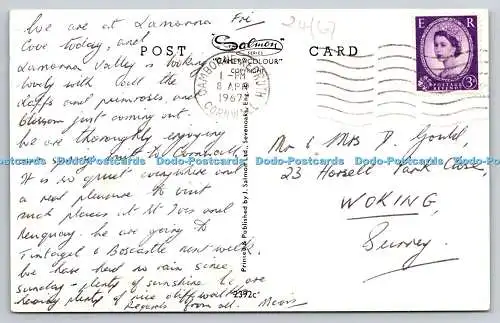 We are at Lamorna Fri
Cove today, and
Lamorna Valley is looking
lovely with all the
daffs and primroses and
blossom just coming out.
We are thoroughly enjoying
our spring visit to Cornwall
It is so quiet everywhere and
a real pleasure to visit
such places as St Ives and
Newquay. We are going to
Tintagel & Boscastle next week.
We have had no rain since
Sunday - plenty of sunshine. We are
having plenty of nice cliff walks
Regards from all.
24/67
POST CARD
Salmon
SERIES
"CAMERACOLOUR"
COPYRIGHT
CAMBORNE-REDRUTH
1 - PM
8 APR
1967
CORNWALL
E R
POSTAGE REVENUE
3D
Printed & Published by J. Salmon Ltd., Sevenoaks, Eng.
2392c
Mr & Mrs D. Gould,
23 Horsell Park Close,
WOKING,
Surrey.
Dodo-Postcards Dodo-Postcards Dodo-Postcards Dodo-Postcards Dodo-Postcards Dodo-Postcards